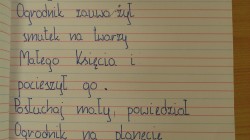 Ogrodnik zauważył
smutek na twarzy
Małego Księcia i
pocieszył go.
Posłuchaj mały, powiedział
Ogrodnik na planecie